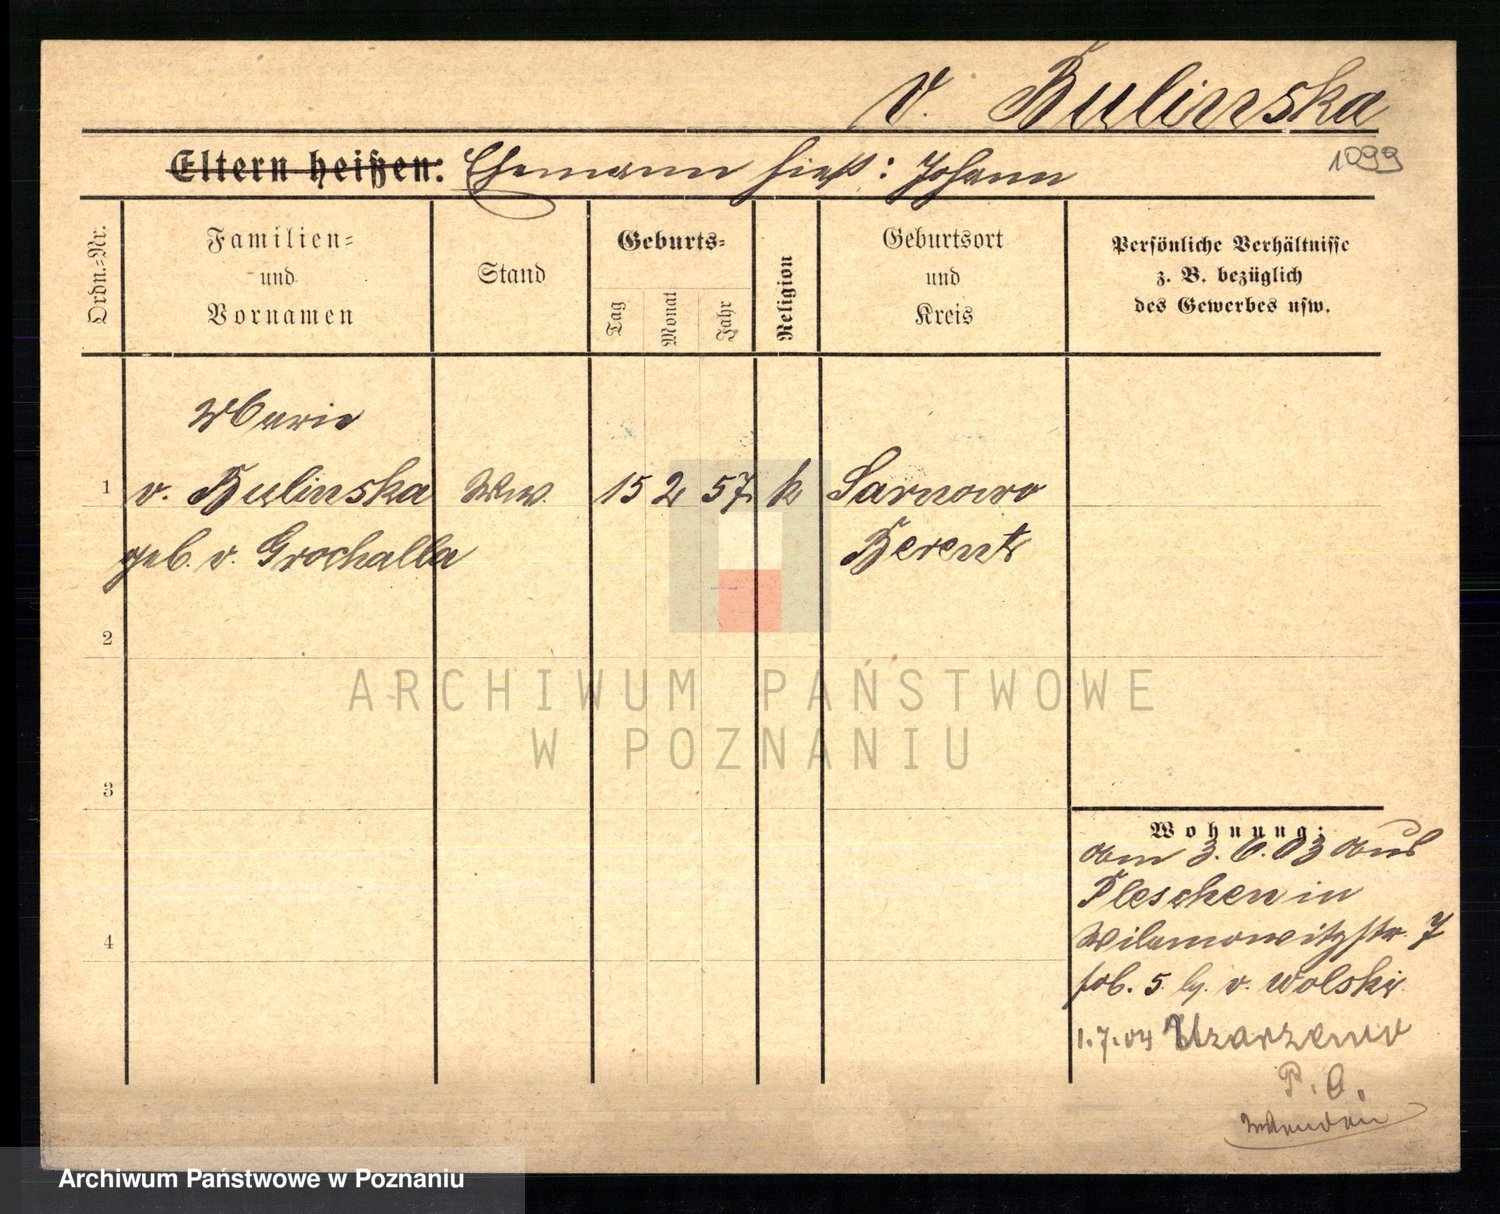 v. Bulinska
Eltern heißen: Ehemann hieß: Johann
1099
Ordn.-Nr.
Familien-
und
Vornamen
Stand
Geburts-
Tag
Monat
Jahr
Religion
Geburtsort
und
Kreis
Persönliche Verhältnisse
z. B. bezüglich
des Gewerbes usw.
Marie
1 v. Bulinska Ww. 15 2 57 k Sarnowo
geb. v. Grochalla Berent
2
3
4
Wohnung:
am 3. 6. 03 aus
Pleschen in
Wilamowitzstr. 7
5 v. Wolski
1.7.04
P. O.
ARCHIWUM PAŃSTWOWE
W POZNANIU
Archiwum Państwowe w Poznaniu